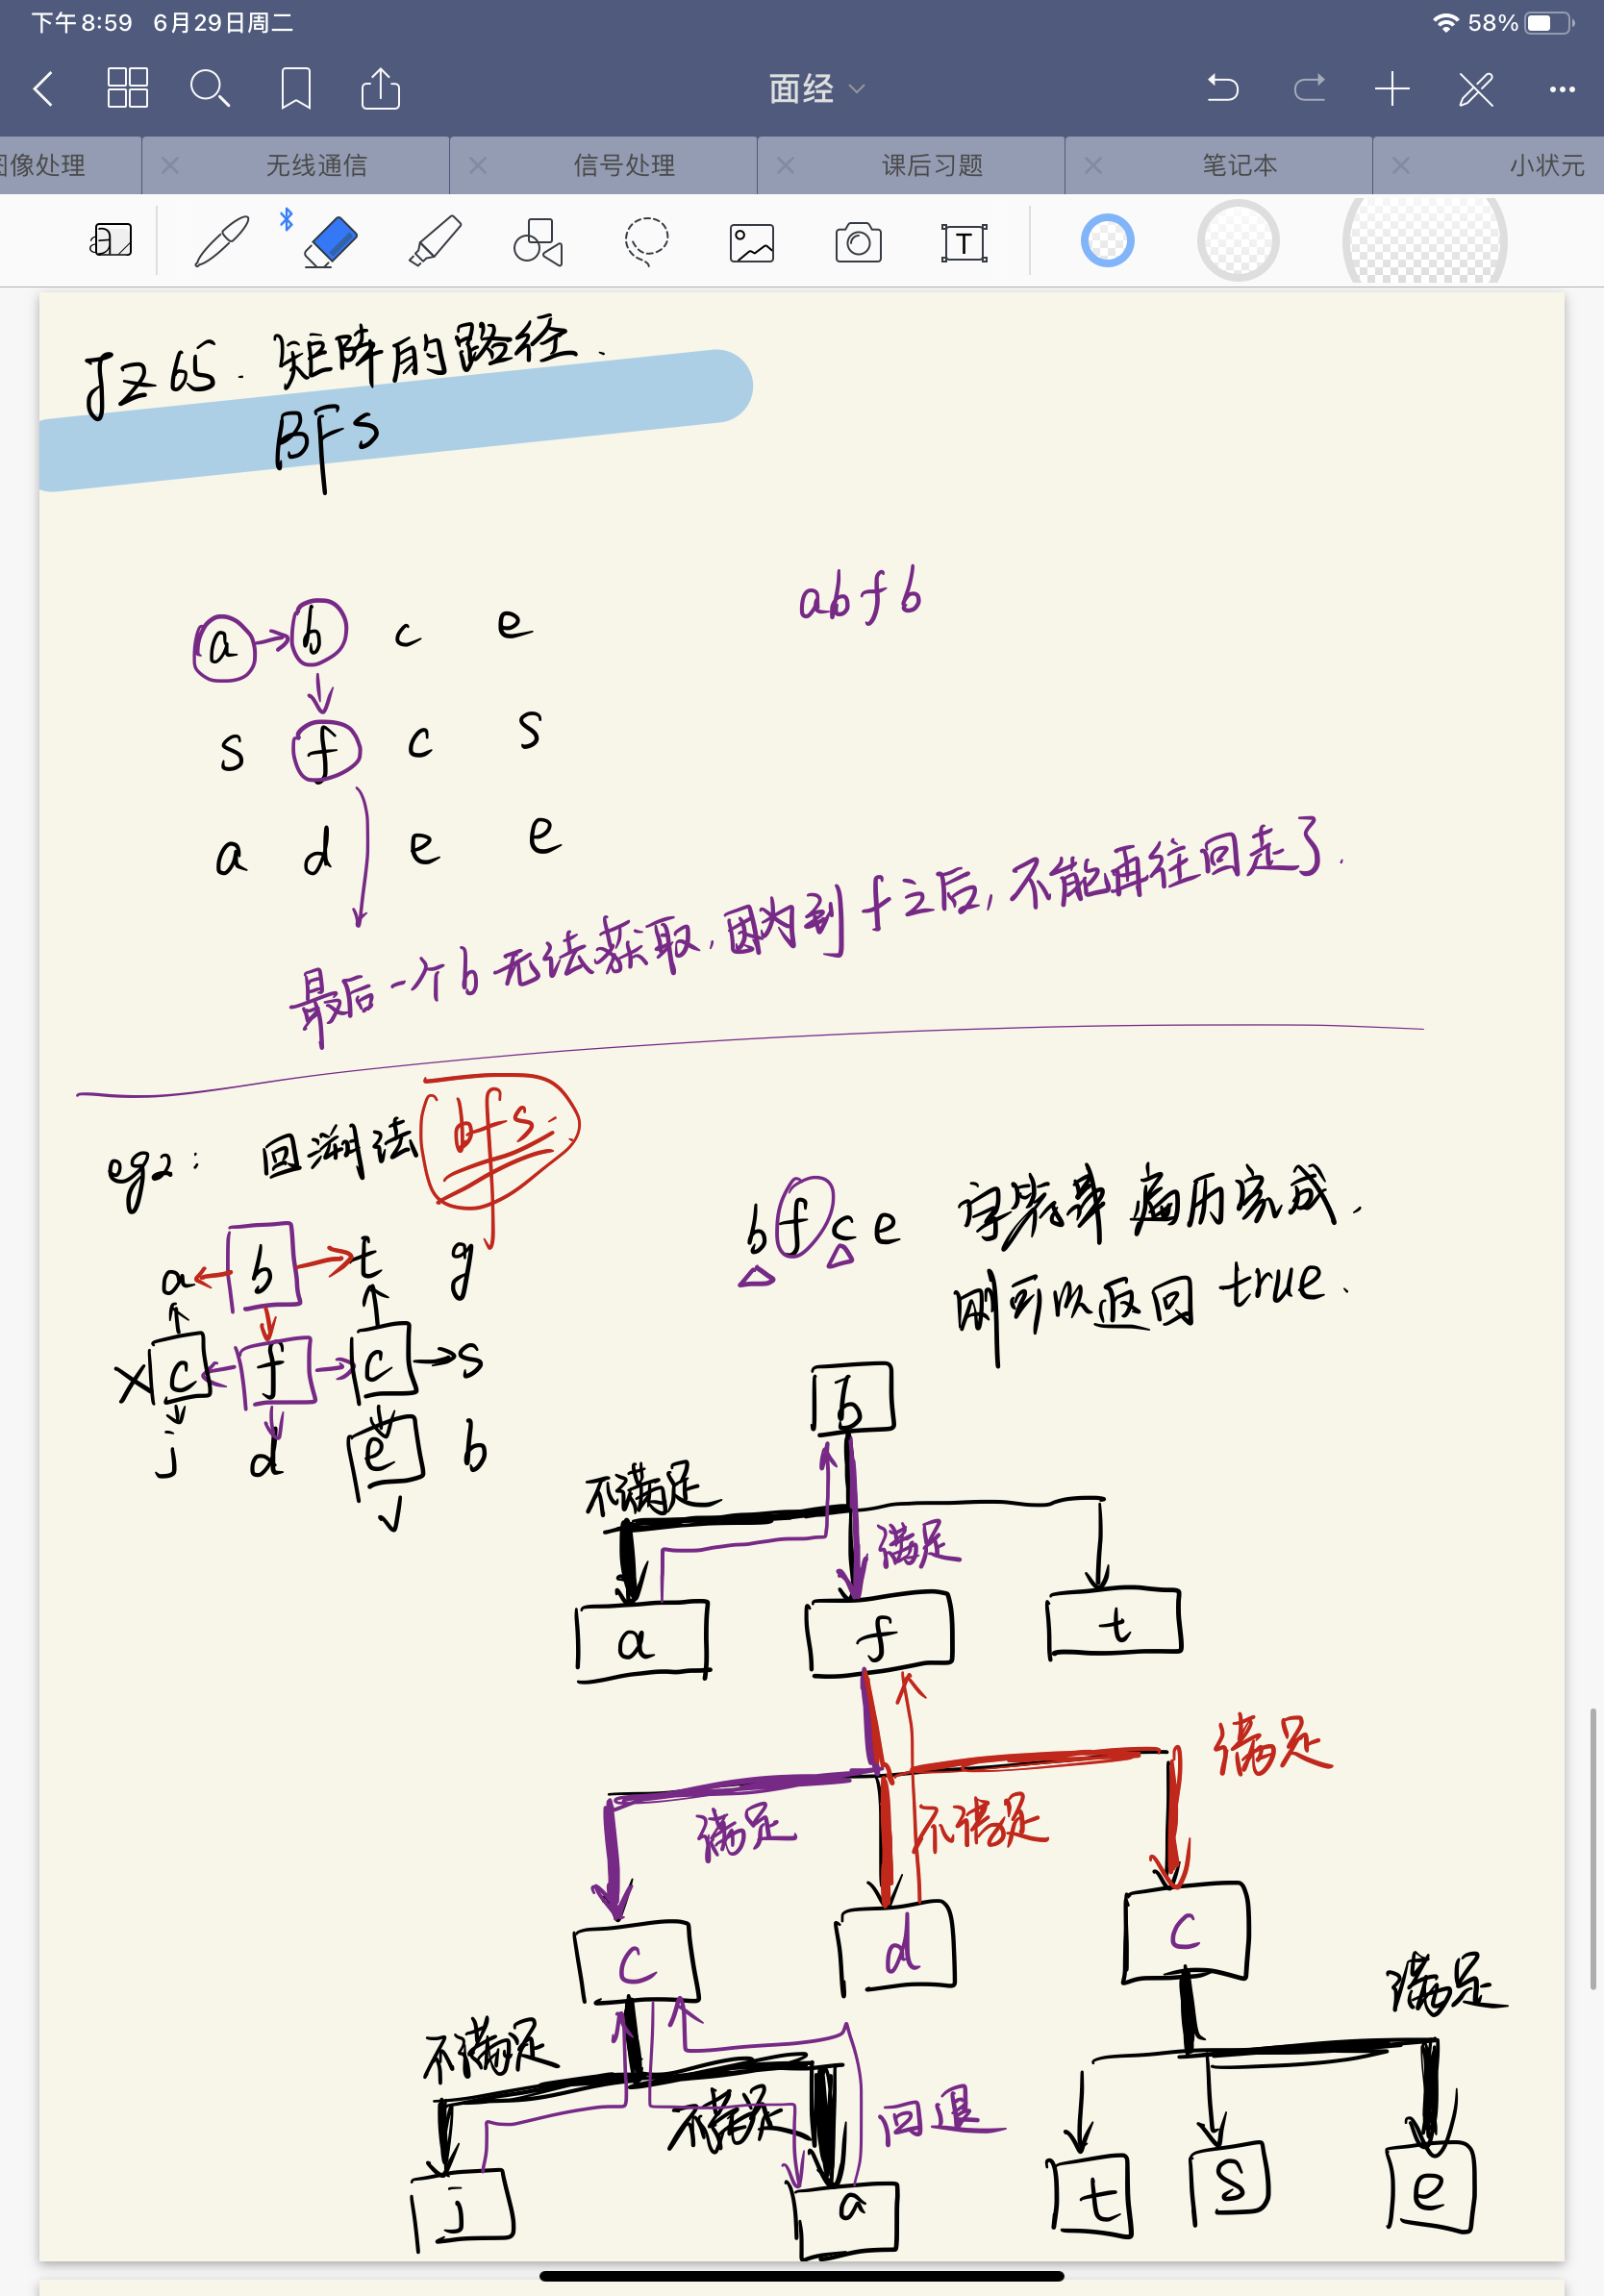 下午8:59 6月29日周二
58%
面经
图像处理 无线通信 信号处理 课后习题 笔记本 小状元
T
JZ65. 矩阵的路径.
BFS
abfb
a b c e
s f c s
a d e e
最后一个b无法获取,因为到f之后,不能再往回走了.
eg2: 回溯法 bfs.
bfce 字符串遍历完成.
则可以返回true.
a b t g
X c f c s
j d e b
b
不满足
满足
a f t
满足
满足 不满足
c d c
满足
不满足
不满足 回退
j a t s e